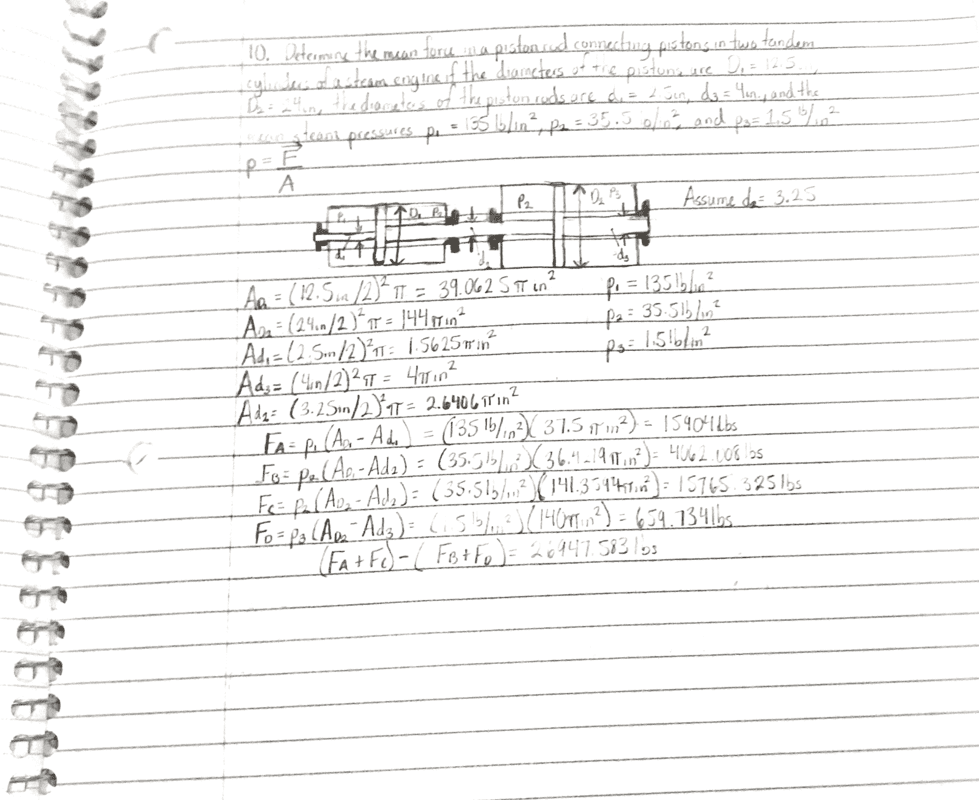 10. Determine the mean force in a piston rod connecting pistons in two tandem
cylinders of a steam engine if the diameters of the pistons are D₁ = 12.5
D₂ = 24in, the diameters of the piston rods are d₁ = 2.5in, d₃ = 4in, and the
mean steam pressures p₁ = 135 lb/in², p₂ = 35.5 and p₃ = 1.5 lb/in²
p = F⃗/A
Assume d₂ = 3.25
P₁ D₁ P₂ P₂ D₂ P₃
d₁ d₂ d₃
A = (12.5in/2)²π = 39.0625π in² p₁ = 135lb/in²
A_D₂ = (24in/2)²π = 144π in² p₂ = 35.5lb/in²
Ad₁ = (2.5in/2)²π = 1.5625π in² p₃ = 1.5lb/in²
Ad₃ = (4in/2)²π = 4π in²
Ad₂ = (3.25in/2)²π = 2.6406π in²
F_A = p₁(A_D₁ - Ad₁) = (135 lb/in²)(37.5 π in²) = 15904 lbs
F_B = p₂(A_D₁ - Ad₂) = (35.5lb/in²)(36.4219π in²) = 4062.108 lbs
F_C = p₂(A_D₂ - Ad₂) = (35.5lb/in²)(141.3594π in²) = 15765.325 lbs
F_D = p₃(A_D₂ - Ad₃) = (1.5 lb/in²)(140π in²) = 659.734 lbs
(F_A + F_C) - (F_B + F_D) = 26947.583 lbs